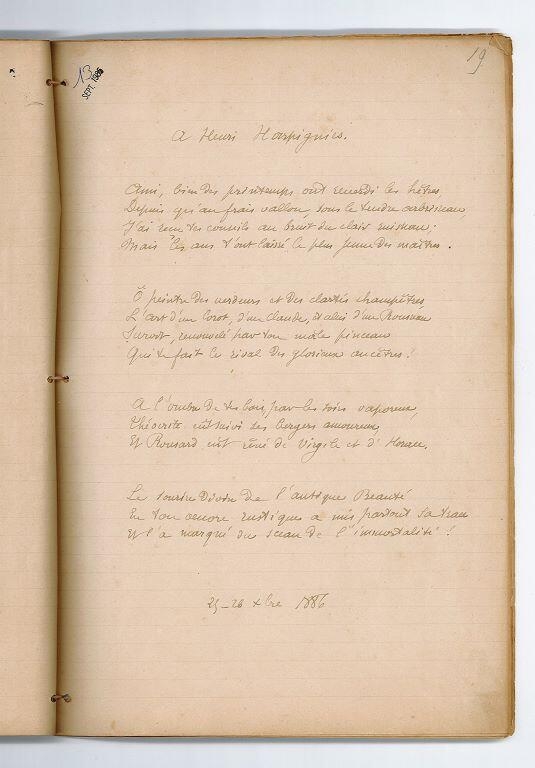 13
SEPT. 1986
19
A Henri Harpignies.
Ami, bien des printemps ont reverdi les hêtres
Depuis qu'au frais vallon, sous le tendre arbrisseau,
J'ai reçu tes conseils au bruit du clair ruisseau;
Mais les ans t'ont laissé le plus jeune des maîtres.
Ô peintre des verdeurs et des clartés champêtres,
L'art d'un Corot, d'un Claude, et celui d'un Rousseau
Survit, renouvelé par ton mâle pinceau
Qui te fait le rival des glorieux ancêtres!
A l'ombre de tes bois, par les soirs vaporeux,
Théocrite eût suivi ses bergers amoureux
Et Ronsard eût rêvé de Virgile et d'Horace.
Le sourire divin de l'antique Beauté
En ton oeuvre rustique a mis partout sa trace
Et l'a marqué du sceau de l'immortalité!
25-26 xbre 1886